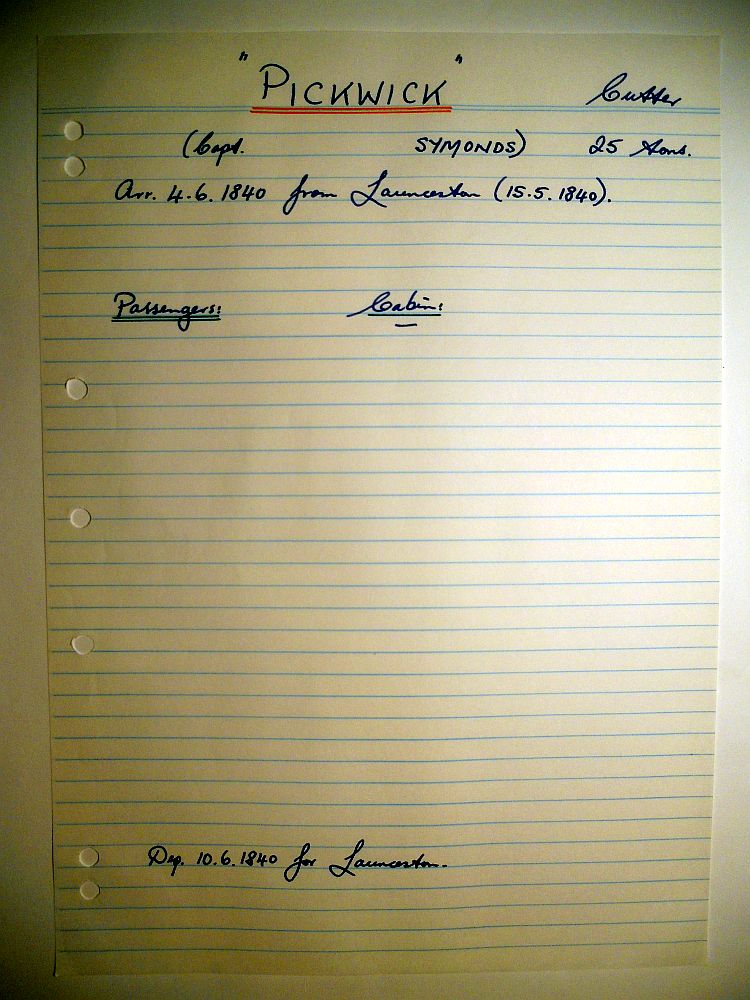 "PICKWICK" Cutter
(Capt. SYMONDS) 25 tons.
Arr. 4.6.1840 from Launceston (15.5.1840).
Passengers: Cabin:
Dep. 10.6.1840 for Launceston.